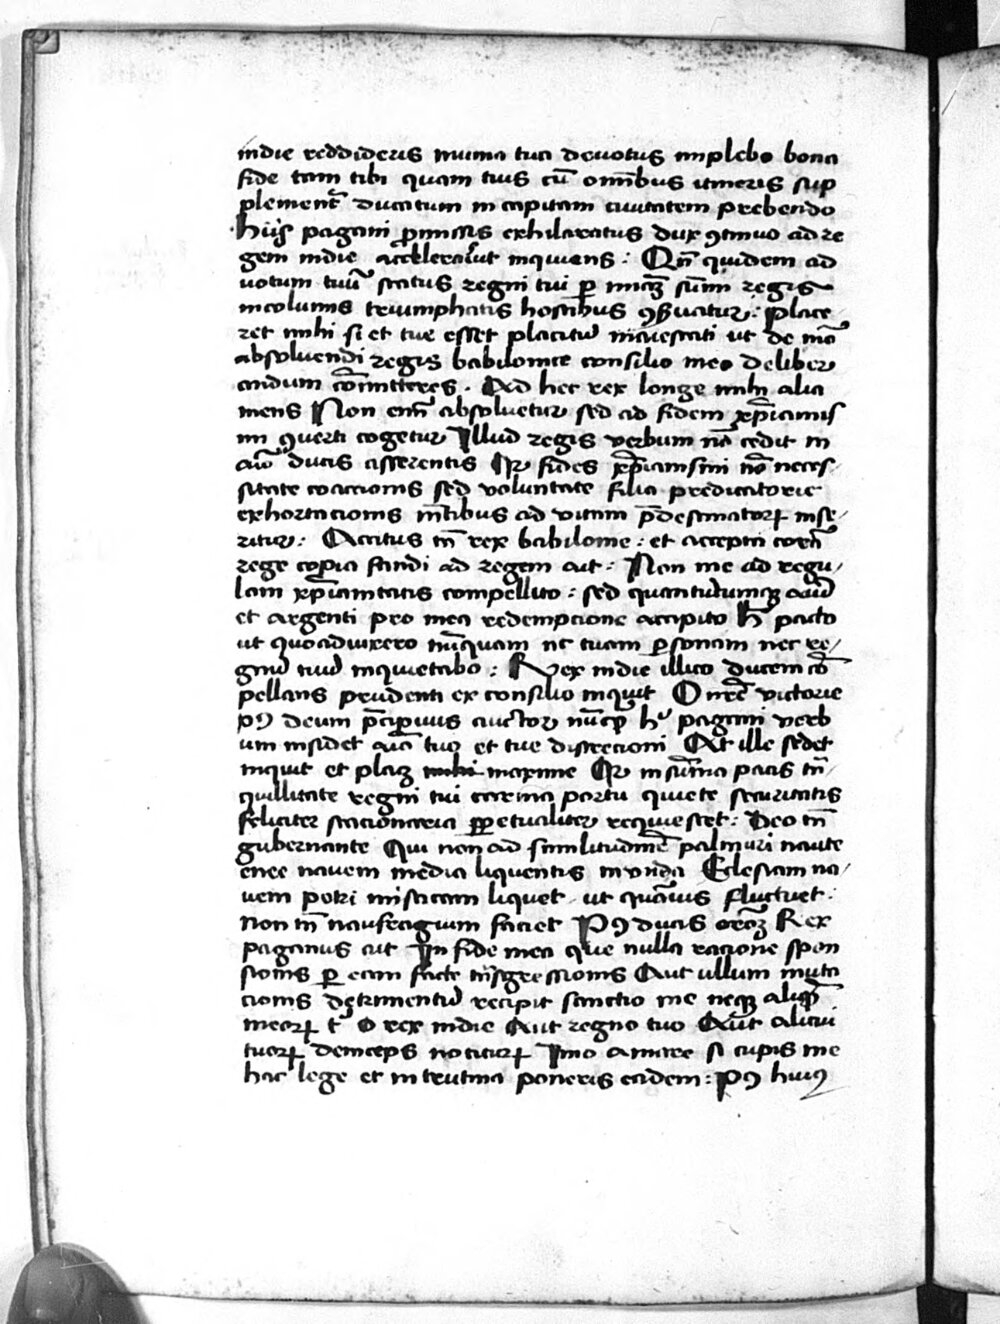 indie reddideris munia tua deuotus implebo bona
fide tam tibi quam tuis cū omībus itineris sup
plement̄ ducatum in capitam ciuitatem prebendo
hiis pagani p̄missis exhilaratus dux ꝯtinuo ad re
gem indie accelerauit inquiens : Qn̄ quidem ad
votum tuū status regni tui ꝑ sūmi regis
incolumis triumphatis hostibus ꝯẜuatur : place
ret mihi si et tue esset placitū maiestati ut de mō
absoluendi regis babilonie consilio meo deliber
andum cōmitteres . Ad hec rex longe mihi alia
mens Non em̄ absoluetur sed ad fidem xp̄ianis
mi ꝯuerti cogetur Illud regis verbum nō cedit in
aīo ducis asserentis Qr fides xp̄ianismi nō neces
sitate coaccionis sed voluntate filia predicatorie
exhortacionis mētibus ad vitam p̄destinatorꝝ inse
ritur : Accitus tn̄ rex babilonie : et accepta corā
rege copia fandi ad regem ait : Non me ad regu
lam xp̄ianitatis compellito : sed quantūcumqꝫ auri
et argenti pro mea redempcione accipito h̄ pacto
ut quoaduixero nūquam nc̄ tuam ꝑsonam nec re
gnū tuū inquietabo : Rex indie illico ducem cō
pellans prudenti ex consilio inquit O nr̄e victorie
pꝯ deum p̄cipuus auctor nūqꝫ h pagani verb
um insidet aīo tuo et tue discrecioni At ille sedet
inquit et plaꝫ maxime Qr in sūma pacis tn̄
quillitate regni tui carina portu quiete securitatis
feliciter stacionaria ꝑpetualiter requiescet : Deo tn̄
gubernante Qui non ad similitudinē palinuri naute
enee nauem media liquentis in vnda Eclesiam na
uem petri misticam liquet ut quāuis fluctuet :
non tn̄ naufragium faciet Pꝯ ducis orōꝫ Rex
paganus ait In fide mea que nulla racione spon
sionis ꝑ eam facte tn̄sgressionis Aut ullum muta
cionis detrimentū recipit sanctio me neqꝫ aliqꝫ
meorꝝ t O rex indie Aut regno tuo Aut alicui
tuorꝝ deinceps nociturꝝ Imo amare si cupis me
hac lege et in trutina poneris eadem : Pꝯ huiꝯ